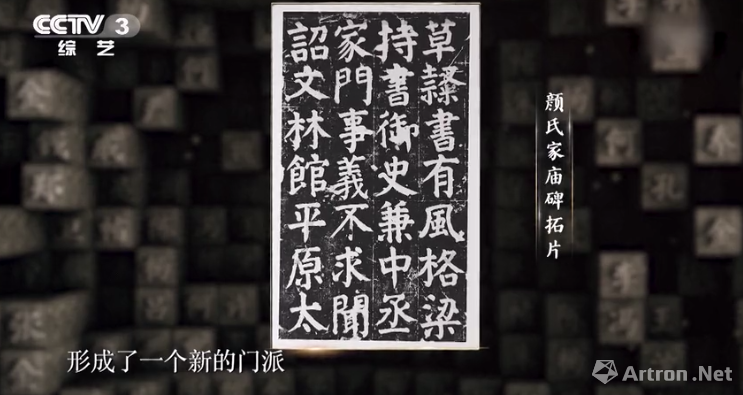 CCTV 3
综艺
草隸書有風格梁
持書御史兼中丞
家門事義不求聞
詔文林館平原太
颜氏家庙碑拓片
形成了一个新的门派
Artron.Net